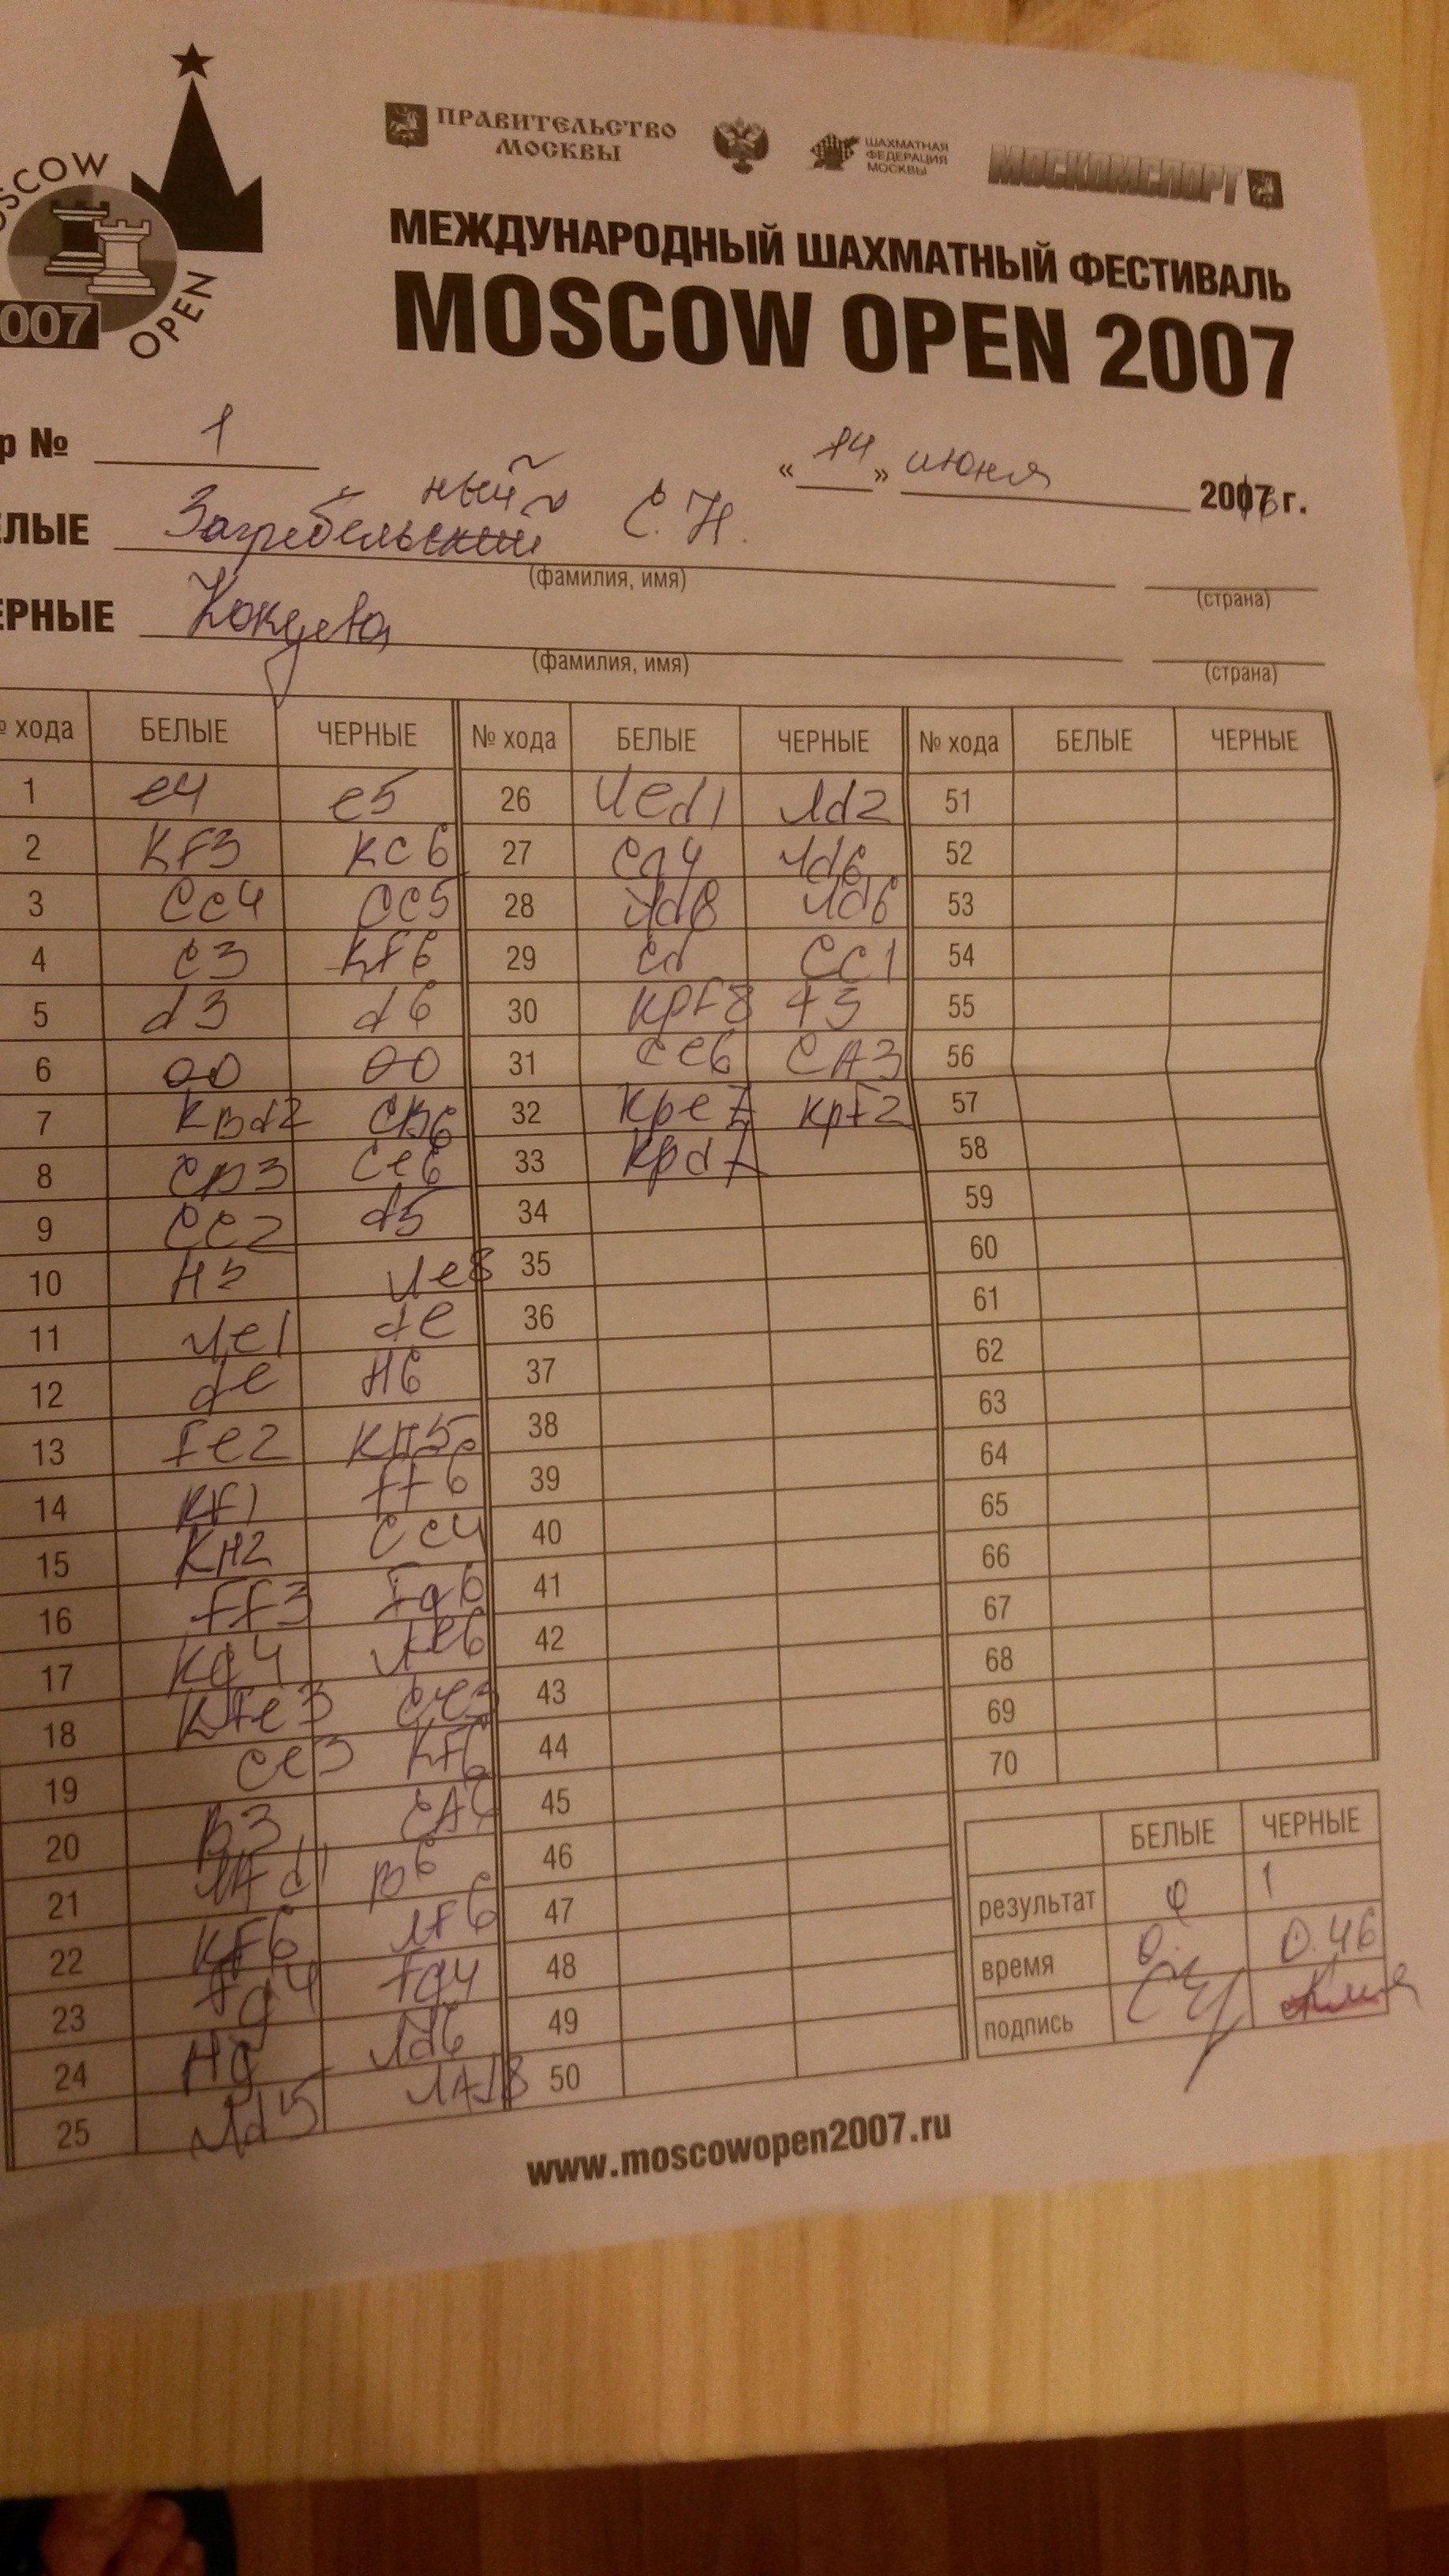 ПРАВИТЕЛЬСТВО
МОСКВЫ
ШАХМАТНАЯ
ФЕДЕРАЦИЯ
МОСКВЫ
МОСКОМСПОРТ
OSCOW
OPEN
007
МЕЖДУНАРОДНЫЙ ШАХМАТНЫЙ ФЕСТИВАЛЬ
MOSCOW OPEN 2007
р № 1
«14» июня 2007 г.
ЕЛЫЕ Загребельский ный С. Н.
(фамилия, имя) (страна)
ЕРНЫЕ
(фамилия, имя) (страна)
№ хода БЕЛЫЕ ЧЕРНЫЕ № хода БЕЛЫЕ ЧЕРНЫЕ № хода БЕЛЫЕ ЧЕРНЫЕ
1 e4 e5 26 Лed1 Лd2 51
2 Kf3 Kc6 27 Сg4 Лd6 52
3 Cc4 Cc5 28 Лd6 Лd6 53
4 c3 Kf6 29 cd Cc1 54
5 d3 d6 30 Kpf8 f5 55
6 00 00 31 Ce6 CA3 56
7 KBd2 CB6 32 Kpe7 Kpf2 57
8 CB3 Ce6 33 Kpd7 58
9 Cc2 d5 34 59
10 H3 Лe8 35 60
11 Лe1 de 36 61
12 de H6 37 62
13 fe2 KH5 38 63
14 Kf1 ff6 39 64
15 KH2 Cc4 40 65
16 ff3 fg6 41 66
17 Kg4 Лe6 42 67
18 Kfe3 Ce3 43 68
19 Ce3 Kf6 44 69
20 B3 CA6 45 70
21 ЛAd1 B6 46
22 Kf6 Лf6 47
23 fg4 fg4 48
24 Hg Лd6 49
25 Лd5 ЛAd8 50
БЕЛЫЕ ЧЕРНЫЕ
результат 0 1
время 0.46
подпись
www.moscowopen2007.ru